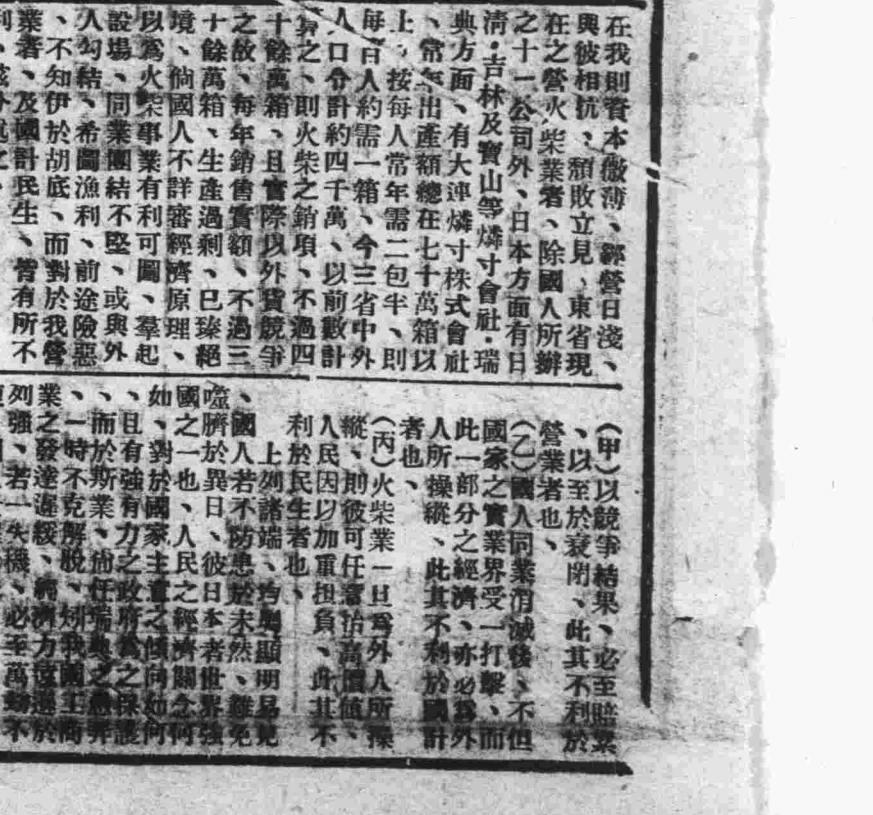 在我則資本微薄、經營日淺、
與彼相抗、頹敗立見、東省現
在之營火柴業者、除國人所辦
之十一公司外、日本方面有日
淸・吉林及寶山等燐寸會社・瑞
典方面、有大連燐寸株式會社
、常年出產額總在七十萬箱以
上、按每人常年需二包半、則
每百人約需一箱、今三省中外
人口合計約四千萬、以前數計
算之、則火柴之銷項、不過四
十餘萬箱、且實際以外貨競爭
之故、每年銷售實額、不過三
十餘萬箱、生產過剩、已臻絕
境、倘國人不詳審經濟原理、
以爲火柴事業有利可圖、羣起
設場、同業團結不堅、或與外
人勾結、希圖漁利、前途險惡
、不知伊於胡底、而對於我營
業者、及國計民生、皆有所不
利、
(甲)以競爭結果、必至賠累
、以至於衰閉、此其不利於
營業者也、
(乙)國人同業消滅後、不但
國家之實業界受一打擊、而
此一部分之經濟、亦必爲外
人所操縱、此其不利於國計
者也、
(丙)火柴業一旦爲外人所操
縱、則彼可任意抬高價値、
人民因以加重担負、此其不
利於民生者也、
上列諸端、均輿顯明易見
、國人若不防患於未然、難免
噬臍於異日、彼日本者世界強
國之一也、人民之經濟關念何
如、對於國家主意之傾向如何
、且有強有力之政府爲之保護
、而於斯業、尙任瑞典之憑弄
、一時不克解脫、矧我國工商
業之發達遲緩、經濟力遠遜於
列強、若一失機、必至萬刼不